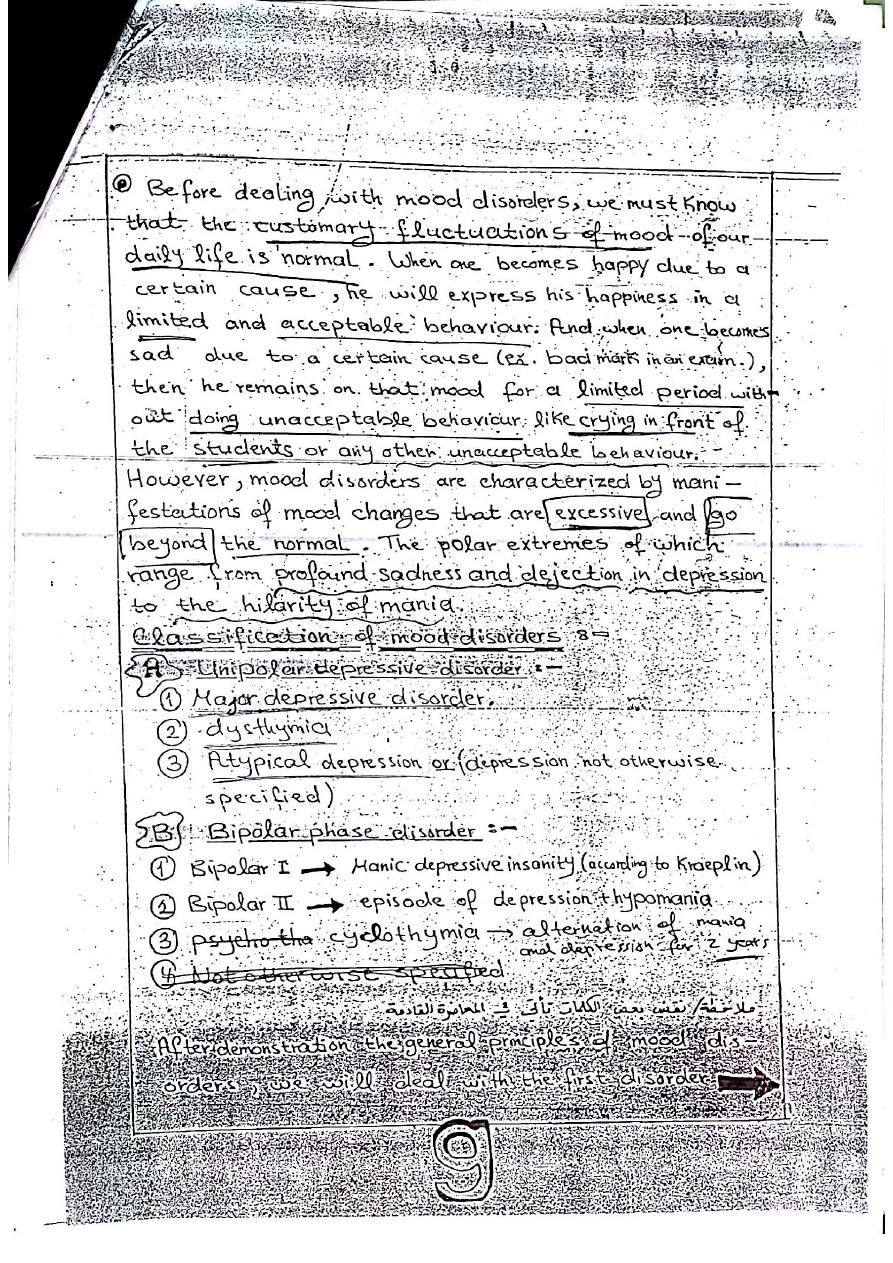 Before dealing with mood disorders, we must know
that the customary fluctuations of mood of our
daily life is normal. When one becomes happy due to a
certain cause, he will express his happiness in a
limited and acceptable behaviour. And when one becomes
sad due to a certain cause (ex. bad mark in an exam.),
then he remains on that mood for a limited period with-
out doing unacceptable behaviour like crying in front of
the students or any other unacceptable behaviour.
However, mood disorders are characterized by mani-
festations of mood changes that are excessive and go
beyond the normal. The polar extremes of which
range from profound sadness and dejection in depression
to the hilarity of mania.
Classification of mood disorders :-
A Unipolar depressive disorder :-
① Major depressive disorder.
② dysthymia
③ Atypical depression or (depression not otherwise
specified)
B Bipolar phase disorder :-
① Bipolar I → Manic depressive insanity (according to Kraeplin)
② Bipolar II → episode of depression + hypomania
③ psycho tha cyclothymia → alternation of mania
and depression for 2 years
④ Not otherwise specified
ملاحظة/ بعض الكلمات تأتي في المحاضرة القادمة
After demonstration the general principles of mood dis-
orders, we will deal with the first disorder
9